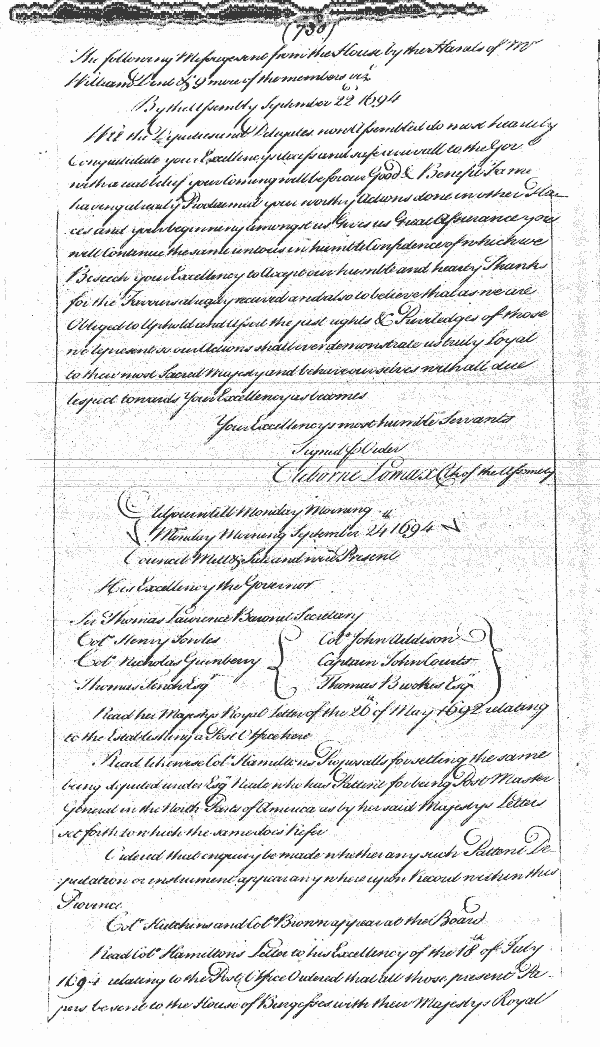 (738)
The following Message sent from the House by the Hands of Mr
William Dent & 9 more of the members viz.
By the Assembly September 22 1694
Wee the Deputies and Delegates now Assembled do most heartily
Congratulate your Excellencys access and safe arrivall to the Gov
with a real belief your Coming will be for our Good & Benefit Fame
having already Proclaimed your worthy Actions done in other Pla
ces and your beginning amongst us Gives us Great Assurance you
will Continue the same unto us in humble Confidence of which we
Beseech your Excellency to Accept our humble and hearty Thanks
for the Favours already received and also to believe that as we are
Obliged to Uphold and Assert the just rights & Priviledges of those
we represent so our Actions shall ever demonstrate us truly Loyal
to their most Sacred Majesty and behave ourselves with all due
respect towards Your Excellency as becomes
Your Excellencys most humble Servants
Signed p Order
Cleborne Lomax Clk of the Assembly
Adjourn till Monday Morning
Monday Morning September 24 1694
Council Mett & Sate and were Present
His Excellency the Governor
Sir Thomas Laurence Baronet Secretary
Colo Henry Jowles Colo John Addison
Colo Nicholas Greenberry Captain John Courts
Thomas Tench Esqr Thomas Brookes Esqr
Read her Majestys Royal Letter of the 26th of May 1692 relating
to the Establishing a Post Office here
Read likewise Colo Hamiltons Proposalls for settling the same
being deputed under Esqr Neale who has Pattent for being Post Master
General in the North Parts of America as by her said Majestys Letters
set forth to which the same does Refer
Ordered that enquiry be made whether any such Pattent De
putation or instrument appear any where upon Record within this
Province
Colo Hutchins and Colo Brown appear at the Board
Read Colo Hamiltons Letter to his Excellency of the 18th of July
1694 relating to the Post Office Ordered that all those present Pa
pers be sent to the House of Burgesses with their Majestys Royal